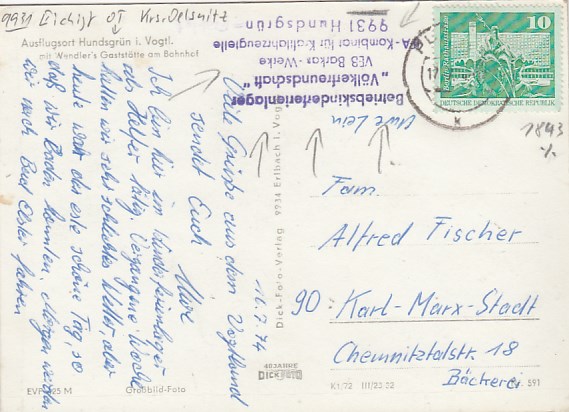 9931 Eichigt OT Krs. Oelsnitz
Ausflugsort Hundsgrün i. Vogtl.
mit Wendler's Gaststätte am Bahnhof
Viele Grüße aus dem Vogtland
sendet Euch
Uwe
16.7.74
Ich bin hier im Kinderferienlager
als Helfer tätig. Vergangene Woche
hatten wir sehr schlechtes Wetter aber
heute war der erste schöne Tag, so
daß wir Baden konnten. Morgen werden
wir nach Bad Elster fahren
EVP
Großbild-Foto
Dick-Foto-Verlag 9934 Erlbach i. Vogtl.
40 JAHRE
DICK FOTO
K1/72 III/23 32
591
Betriebskinderferienlager
„Völkerfreundschaft"
VEB Barkas-Werke
IFA-Kombinat für Kraftfahrzeugteile
9931 Hundsgrün
10
DEUTSCHE DEMOKRATISCHE REPUBLIK
1843
Fam.
Alfred Fischer
90 Karl-Marx-Stadt
Chemnitztalstr. 18
Bäckerei